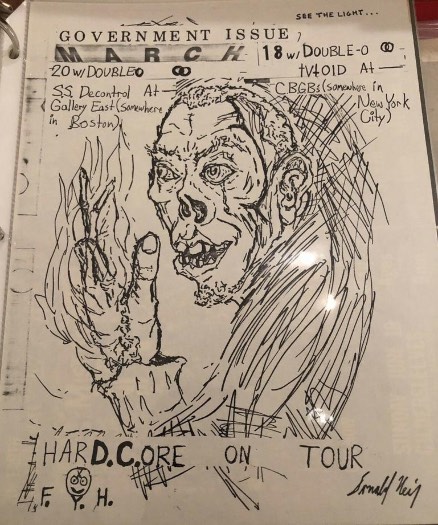 SEE THE LIGHT...
GOVERNMENT ISSUE,
MARCH
18 w/ DOUBLE-O
TV401D At
CBGBs (somewhere in
New York
City)
20 w/ DOUBLEO
S.S. Decontrol At
Gallery East (somewhere
in Boston)
HARD.C.ORE ON TOUR
F. Y. H.